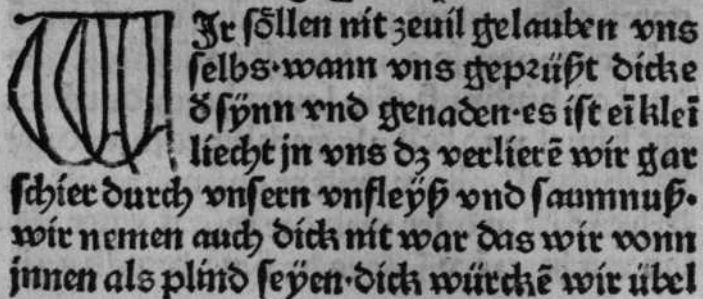 WIr soͤllen nit zeuil gelauben vns
selbs·wann vns geprüßt dicke
đ sÿnn vnd genaden·es ist eī kleī
liecht jn vns dz verlierē wir gar
schier durch vnsern vnfleÿß vnd saumnuß·
wir nemen auch dick nit war das wir vonn
jnnen als plind seÿen·dick würckē wir übel